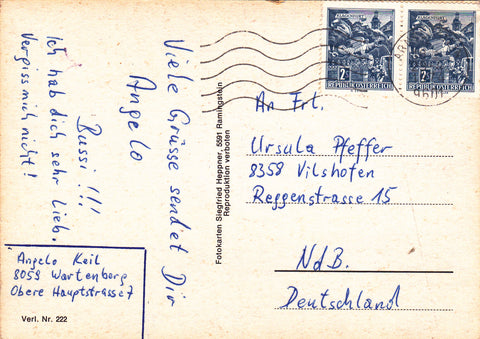 Viele Grüsse sendet Dir
Angelo
Bussi !!!
Ich hab dich sehr lieb.
Vergiss mich nicht!
Angelo Keil
8059 Wartenberg
Obere Hauptstrasse 7
Verl. Nr. 222
Fotokarten Siegfried Heppner, 5591 Ramingstein
Reproduktion verboten
KLAGENFURT
2S
REPUBLIK ÖSTERREICH
KLAGENFURT
2S
REPUBLIK ÖSTERREICH
An Frl.
Ursula Pfeffer
8358 Vilshofen
Reggenstrasse 15
NdB.
Deutschland